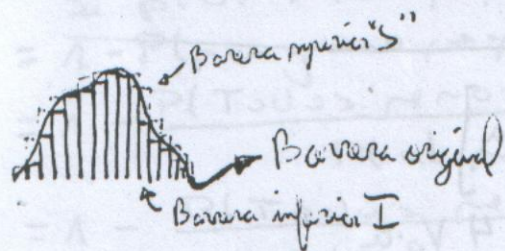 Barrera superior "S"
Barrera original
Barrera inferior I